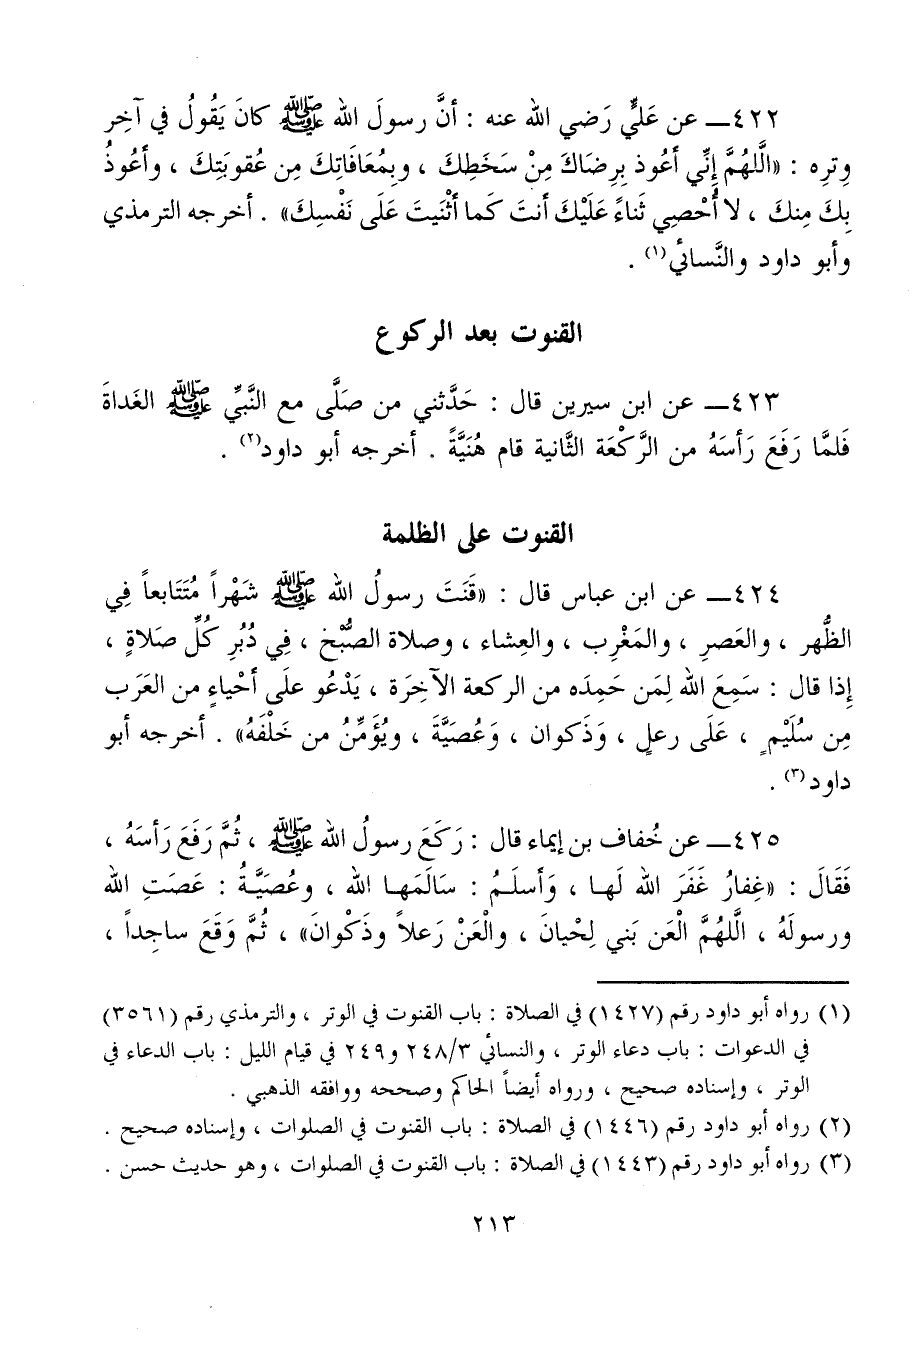 ٤٢٢ـ عن عَليٍّ رَضي الله عنه : أنَّ رسولَ الله ﷺ كانَ يَقُولُ في آخِرِ
وِترِه : «الَّلهُمَّ إنِّي أعُوذ بِرِضَاكَ مِنْ سَخَطِكَ ، وبِمُعَافَاتِكَ مِن عُقوبَتِكَ ، وأعُوذُ
بِكَ مِنكَ ، لا أُحْصِي ثَناءً عَلَيْكَ أنتَ كَما أثْنَيتَ عَلَى نَفْسِكَ» . أخرجه الترمذي
وأبو داود والنَّسائي(١) .
القنوت بعد الركوع
٤٢٣ـ عن ابن سيرين قال : حَدَّثني من صَلَّى مع النَّبيِّ ﷺ الغَداةَ
فَلمَّا رَفَعَ رَأسَهُ من الرَّكْعَة الثَّانية قام هُنَيَّةً . أخرجه أبو داود(٢) .
القنوت على الظلمة
٤٢٤ـ عن ابن عباس قال : «قَنَتَ رسولُ الله ﷺ شَهْراً مُتَتَابعاً فِي
الظُّهر ، والعَصرِ ، والمَغْربِ ، والعِشاء ، وصلاة الصُّبْحِ ، فِي دُبُرِ كُلِّ صَلاةٍ ،
إذا قال : سَمِعَ الله لِمَن حَمِدَه من الركعة الآخِرَة ، يَدْعُو علَى أحْياءٍ من العَرَب
مِن سُلَيْمٍ ، عَلَى رعلٍ ، وَذَكوان ، وَعُصَيَّةَ ، ويُؤَمِّنُ من خَلْفَهُ» . أخرجه أبو
داود(٣) .
٤٢٥ـ عن خُفاف بن إيماء قال : رَكَعَ رسولُ الله ﷺ ، ثُمَّ رَفَعَ رَأسَهُ ،
فَقَالَ : «غِفارُ غَفَرَ الله لَها ، وَأسلَمُ : سَالَمَها الله ، وعُصَيَّةُ : عَصَتِ الله
ورسولَهُ ، الَّلهُمَّ الْعَن بَني لِحْيانَ ، والْعَنْ رَعلاً وذَكْوانَ» ، ثُمَّ وَقَعَ ساجِداً ،
(١) رواه أبو داود رقم (١٤٢٧) في الصلاة : باب القنوت في الوتر ، والترمذي رقم (٣٥٦١)
في الدعوات : باب دعاء الوتر ، والنسائي ٢٤٨/٣ و٢٤٩ في قيام الليل : باب الدعاء في
الوتر ، وإسناده صحيح ، ورواه أيضاً الحاكم وصححه ووافقه الذهبي .
(٢) رواه أبو داود رقم (١٤٤٦) في الصلاة : باب القنوت في الصلوات ، وإسناده صحيح .
(٣) رواه أبو داود رقم (١٤٤٣) في الصلاة : باب القنوت في الصلوات ، وهو حديث حسن .
٢١٣